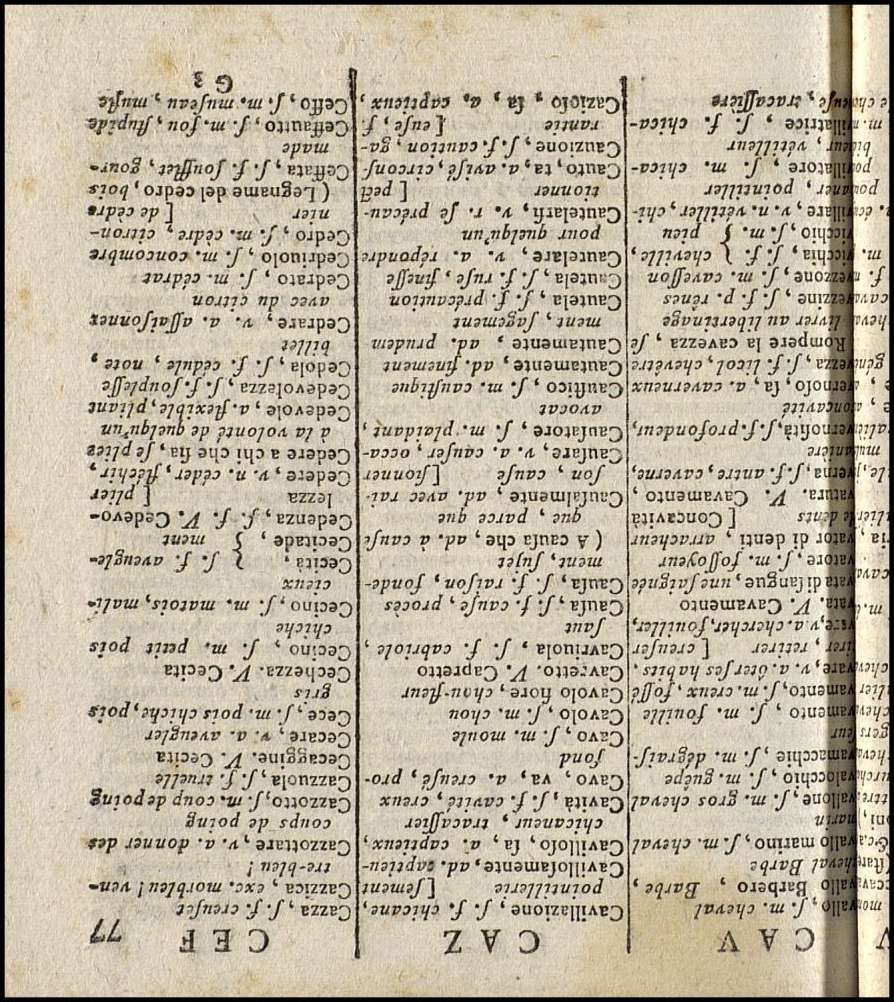 CAV
CAZ
CEF 77
vallo, ſ. m. cheval
vallo Barbero, Barbe,
cheval Barbe
vallo marino, ſ. m. cheval
marin
vallone, ſ. m. gros cheval
valocchio, ſ. m. guêpe
vamacchie, ſ. m. dégraiſ-
ſeur
vamento, ſ. m. fouille
vamento, ſ. m. creux, foſſé
vare, v. a. ôter ſes habits,
tirer, retirer [ creuſer
vare, v. a. chercher, fouiller,
vata. V. Cavamento
vata di ſangue, une ſaignée
vatore, ſ. m. foſſoyeur
vator di denti, arracheur
de dents [ Concavità
vatura. V. Cavamento,
verna, ſ. f. antre, caverne,
tanière
vernoſità, ſ. f. profondeur,
concavité
vernoſo, ſa, a. caverneux
vezza, ſ. f. licol, chevêtre
Rompere la cavezza, ſe
livrer au libertinage
vezzine, ſ. f. p. rênes
vezzone, ſ. m. caveſſon
vicchia, ſ. f. } cheville,
vicchio, ſ. m. } pieu
villare, v. n. vétiller, chi-
caner, pointiller
villatore, ſ. m. chica-
neur, vétilleur
villatrice, ſ. f. chica-
neuſe, tracaſſière
Cavillazione, ſ. f. chicane,
pointillerie [ ſement
Cavilloſamente, ad. captieu-
Cavilloſo, ſa, a. captieux,
chicaneur, tracaſſier
Cavità, ſ. f. cavité, creux
Cavo, va, a. creuſé, pro-
fond
Cavo, ſ. m. moule
Cavolo, ſ. m. chou
Cavolo fiore, chou-fleur
Cavretto. V. Capretto
Cavriuola, ſ. f. cabriole,
ſaut
Cauſa, ſ. f. cauſe, procès
Cauſa, ſ. f. raiſon, fonde-
ment, ſujet
( A cauſa che, ad. à cauſe
que, parce que
Cauſalmente, ad. avec rai-
ſon, cauſe [ ſionner
Cauſare, v. a. cauſer, occa-
Cauſatore, ſ. m. plaidant,
avocat
Cauſtico, ſ. m. cauſtique
Cautamente, ad. finement
Cautamente, ad. prudem
ment, ſagement
Cautela, ſ. f. précaution
Cautela, ſ. f. ruſe, fineſſe
Cautelare, v. a. répondre
pour quelqu'un
Cautelarſi, v. r. ſe précau-
tionner [ pect
Cauto, ta, a. aviſé, circonſ
Cauzione, ſ. f. caution, ga-
rantie [ euſe, f.
Cazioſo, ſa, a. captieux,
Cazza, ſ. f. creuſet
Cazzica, exc. morbleu! ven-
tre-bleu!
Cazzottare, v. a. donner des
coups de poing
Cazzotto, ſ. m. coup de poing
Cazzuola, ſ. f. truelle
Cecaggine. V. Cecita
Cecare, v. a. aveugler
Cece, ſ. m. pois chiche, pois
gris
Cechezza. V. Cecita
Cecino, ſ. m. petit pois
chiche
Cecino, ſ. m. matois, mali-
cieux
Cecità, } ſ. f. aveugle-
Cecitade, } ment
Cedenza, ſ. f. V. Cedevo-
lezza [ plier
Cedere, v. n. céder, fléchir,
Cedere a chi che ſia, ſe plier
à la volonté de quelqu'un
Cedevole, a. flexible, pliant
Cedevolezza, ſ. f. ſoupleſſe
Cedola, ſ. f. cédule, note,
billet
Cedrare, v. a. aſſaiſonner
avec du citron
Cedrato, ſ. m. cédrat
Cedriuolo, ſ. m. concombre
Cedro, ſ. m. cèdre, citron-
nier [ de cèdre
( Legname del cedro, bois
Ceffata, ſ. f. ſoufflet, gour-
made
Ceffautto, ſ. m. ſou, ſtupide
Ceffo, ſ. m. muſeau, mufle
G 3